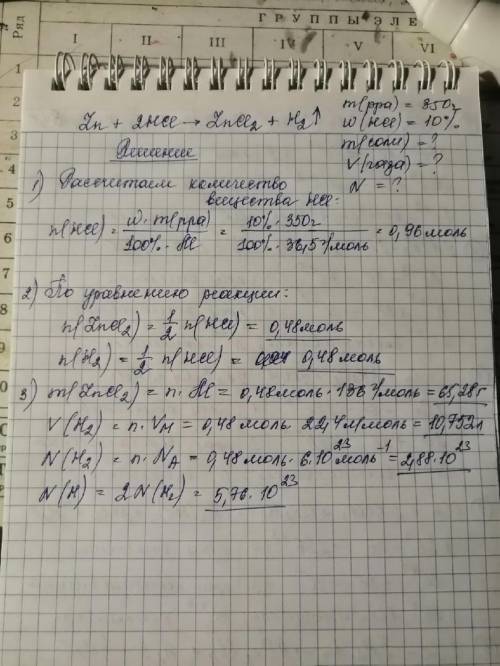 ГРУППЫ ЭЛЕ
Ряд
I II III IV V VI
1
2
3
4
5
6
7
8
9
m(рра) = 350г
w(HCl) = 10%
m(соли) = ?
V(газа) = ?
N = ?
Zn + 2HCl → ZnCl2 + H2↑
Решение
1) Рассчитаем количество
вещества HCl:
n(HCl) = w · m(рра) / 100% · M = 10% · 350г / 100% · 36,5 г/моль = 0,96 моль
2) По уравнению реакции:
n(ZnCl2) = 1/2 n(HCl) = 0,48 моль
n(H2) = 1/2 n(HCl) = 0,48 моль
3) m(ZnCl2) = n · M = 0,48 моль · 136 г/моль = 65,28 г
V(H2) = n · VM = 0,48 моль · 22,4 л/моль = 10,752 л
N(H2) = n · NA = 0,48 моль · 6 · 10^23 моль^-1 = 2,88 · 10^23
N(H) = 2N(H2) = 5,76 · 10^23